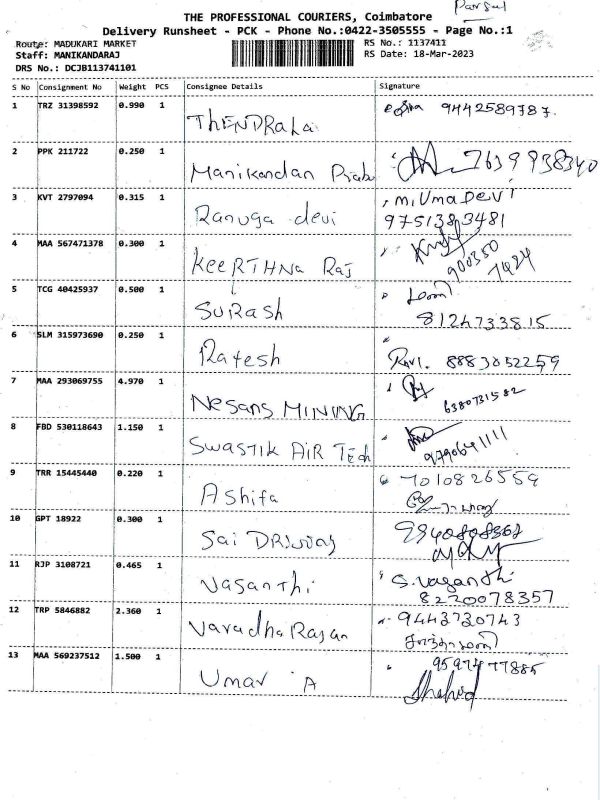 Parsul
THE PROFESSIONAL COURIERS, Coimbatore
Delivery Runsheet - PCK - Phone No.:0422-3505555 - Page No.:1
Route: MADUKARI MARKET
RS No.: 1137411
Staff: MANIKANDARAJ
RS Date: 18-Mar-2023
DRS No.: DCJB113741101
S No Consignment No Weight PCS Consignee Details Signature
1 TRZ 31398592 0.990 1 9442589787.
THENDRALa
2 PPK 211722 0.250 1
Manikandan 7639938340
3 KVT 2797094 0.315 1 M. Uma DEVI
Ranuga devi 9751383481
4 MAA 567471378 0.300 1
KeeRTHNa Raj 900350
7424
5 TCG 40425937 0.500 1
SuRash 8124733815
6 SLM 315973690 0.250 1
Ratesh Ravi. 8883052259
7 MAA 293069755 4.970 1
Nesans MINING 6380731582
8 FBD 530118643 1.150 1
Swastik AiR Tech 9790641111
9 TRR 15445440 0.220 1 7010826559
Ashifa
10 GPT 18922 0.300 1
Sai
11 RJP 3108721 0.465 1 S. Vasanthi
Vasanthi 8220078357
12 TRP 5846882 2.360 1 9443730743
Varadha Rajan
13 MAA 569237512 1.500 1 9597477885
Umar A Shahid